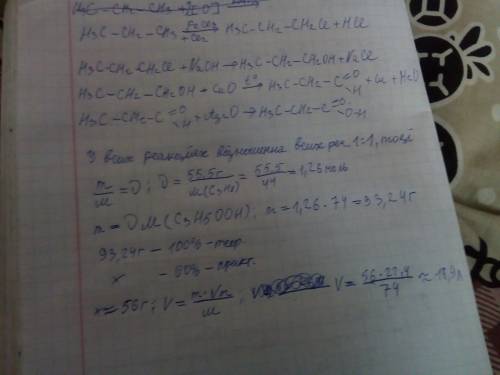 H₃C-CH₂-CH₃ + Cl₂ → H₃C-CH₂-CH₂Cl + HCl
H₃C-CH₂-CH₂Cl + NaOH → H₃C-CH₂-CH₂OH + NaCl
H₃C-CH₂-CH₂OH + CuO →(t°) H₃C-CH₂-C=O H + Cu + H₂O
H₃C-CH₂-C=O H + Ag₂O → H₃C-CH₂-C=O O-H
У всіх реакціях відношення всіх реч 1:1, тоді
m/M = D; D = 55,5г/M(C₃H₈) = 55,5/44 = 1,26 моль
m = D M(C₃H₅OOH); m = 1,26·74 = 93,24г
93,24г - 100% - теор.
x - 60% - практ.
x = 56г; V = m·Vm/M; V = 56·22,4/74 ≈ 16,9л